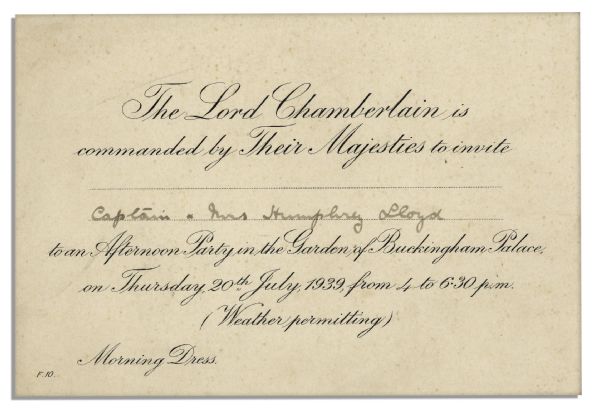 The Lord Chamberlain is
commanded by Their Majesties to invite
Captain & Mrs Humphrey Lloyd
to an Afternoon Party in the Garden of Buckingham Palace,
on Thursday, 20th July, 1939, from 4 to 6·30 p.m.
(Weather permitting)
Morning Dress.
F.10.